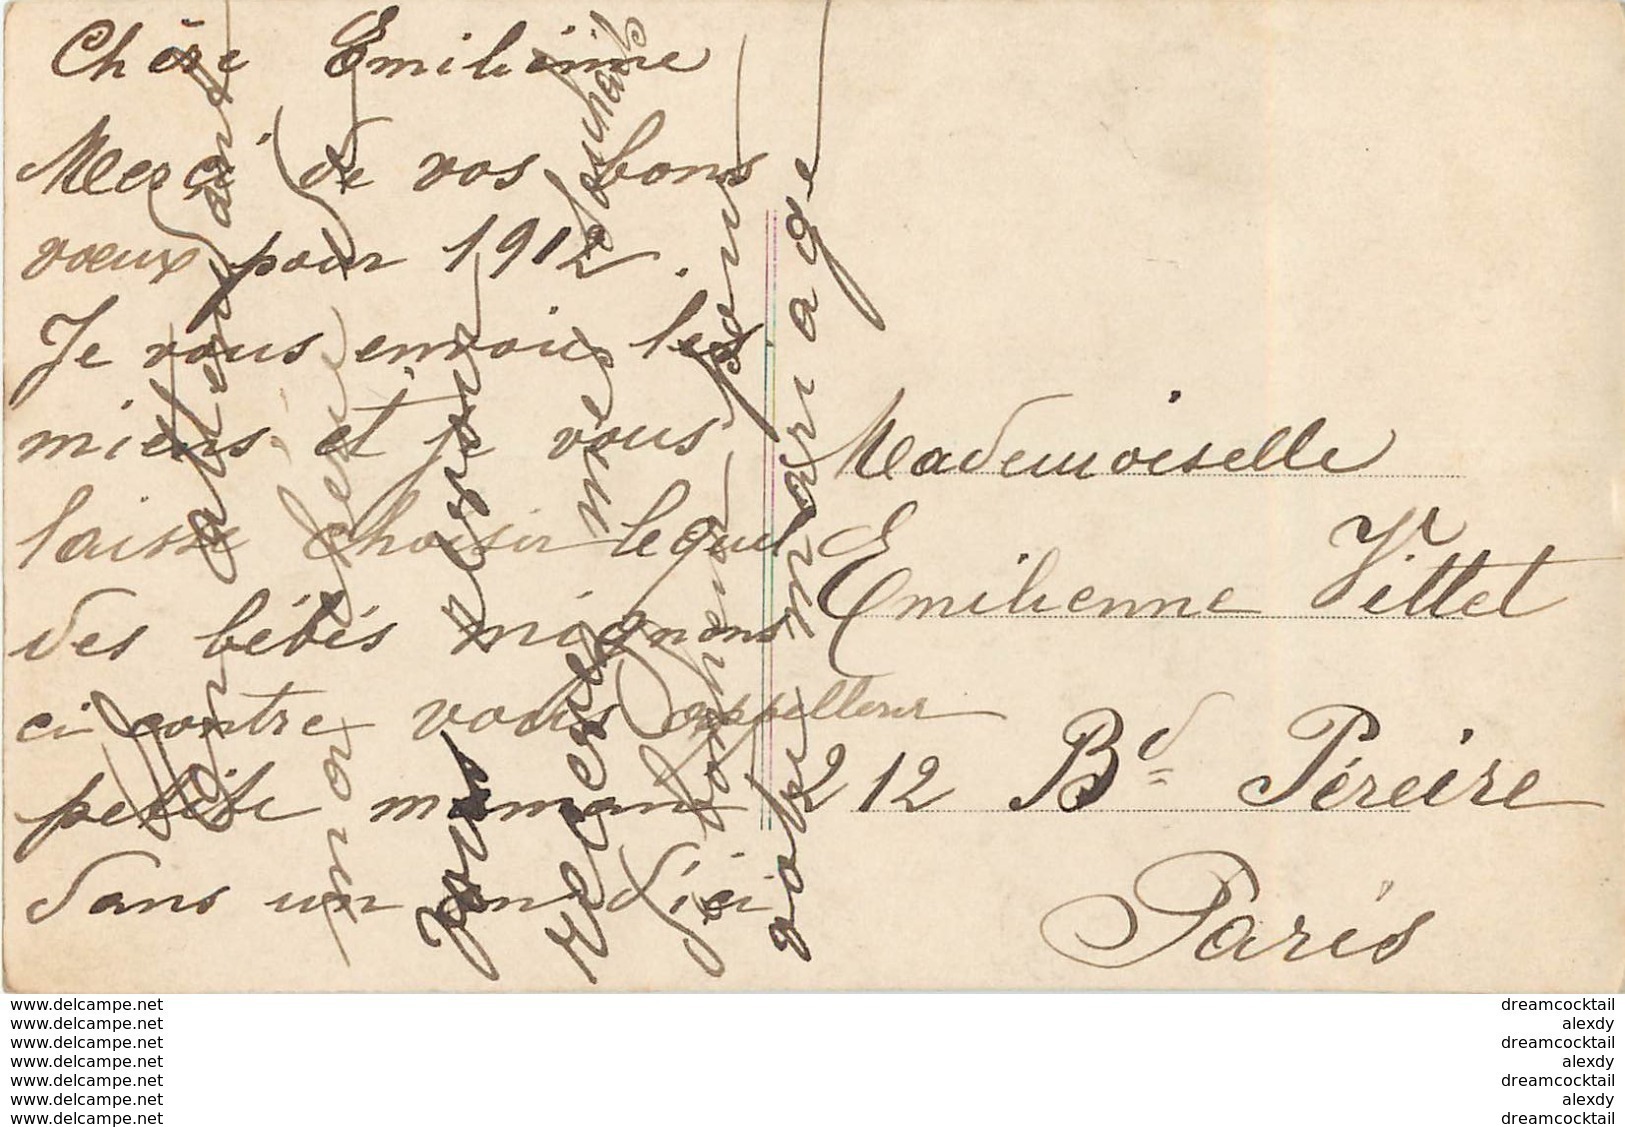 Chère Emilienne
Merci de vos bons
vœux pour 1912.
Je vous envoie les
miens et je vous
laisse choisir lequel
des bébés mignons
ci contre vous appellera
petite maman
dans un an d'ici
En attendant
ma chérie
vous revoir
recevez mes souhaits
de bonheur pour
votre mariage
Mademoiselle
Emilienne Vittet
212 Bd Péreire
Paris
www.delcampe.net
www.delcampe.net
www.delcampe.net
www.delcampe.net
www.delcampe.net
www.delcampe.net
www.delcampe.net
dreamcocktail
alexdy
dreamcocktail
alexdy
dreamcocktail
alexdy
dreamcocktail